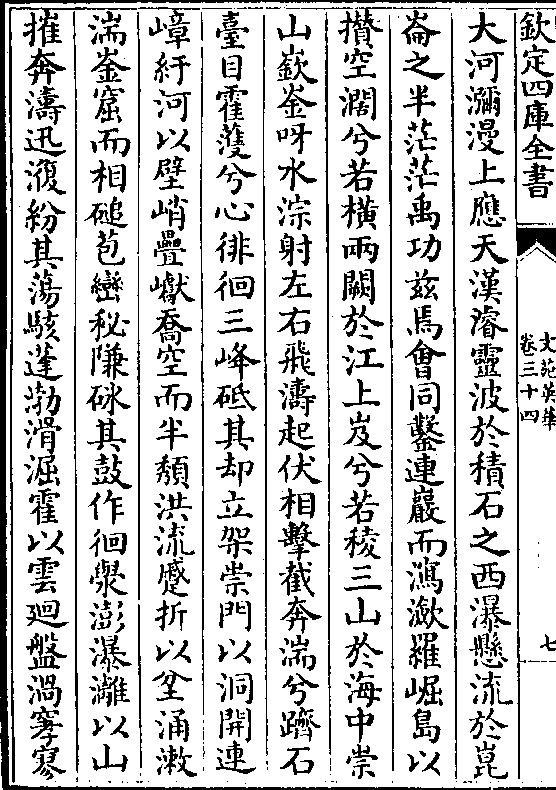 欽定四庫全書
文苑英華
卷三十四
七
大河瀰漫上應天漢濬靈波於積石之西瀑懸流於崑
崙之半茫茫禹功茲焉會同鑿連巖而瀉激羅崛島以
攅空濶兮若橫兩闕於江上岌兮若稜三山於海中崇
山嶔崟呀水淙射左右飛濤起伏相擊截奔湍兮躋石
臺目霍蒦兮心徘徊三峰砥其却立架崇門以洞開連
嶂紆河以壁峭疊巘喬空而半頽洪流蹙折以坌涌潄
湍崟窟而相磓苞巒秘㟻砯其鼓作徊澩澎瀑灕以山
摧奔濤迅澓紛其蕩駭蓬勃滑淈霍以雲迴盤渦窙寥